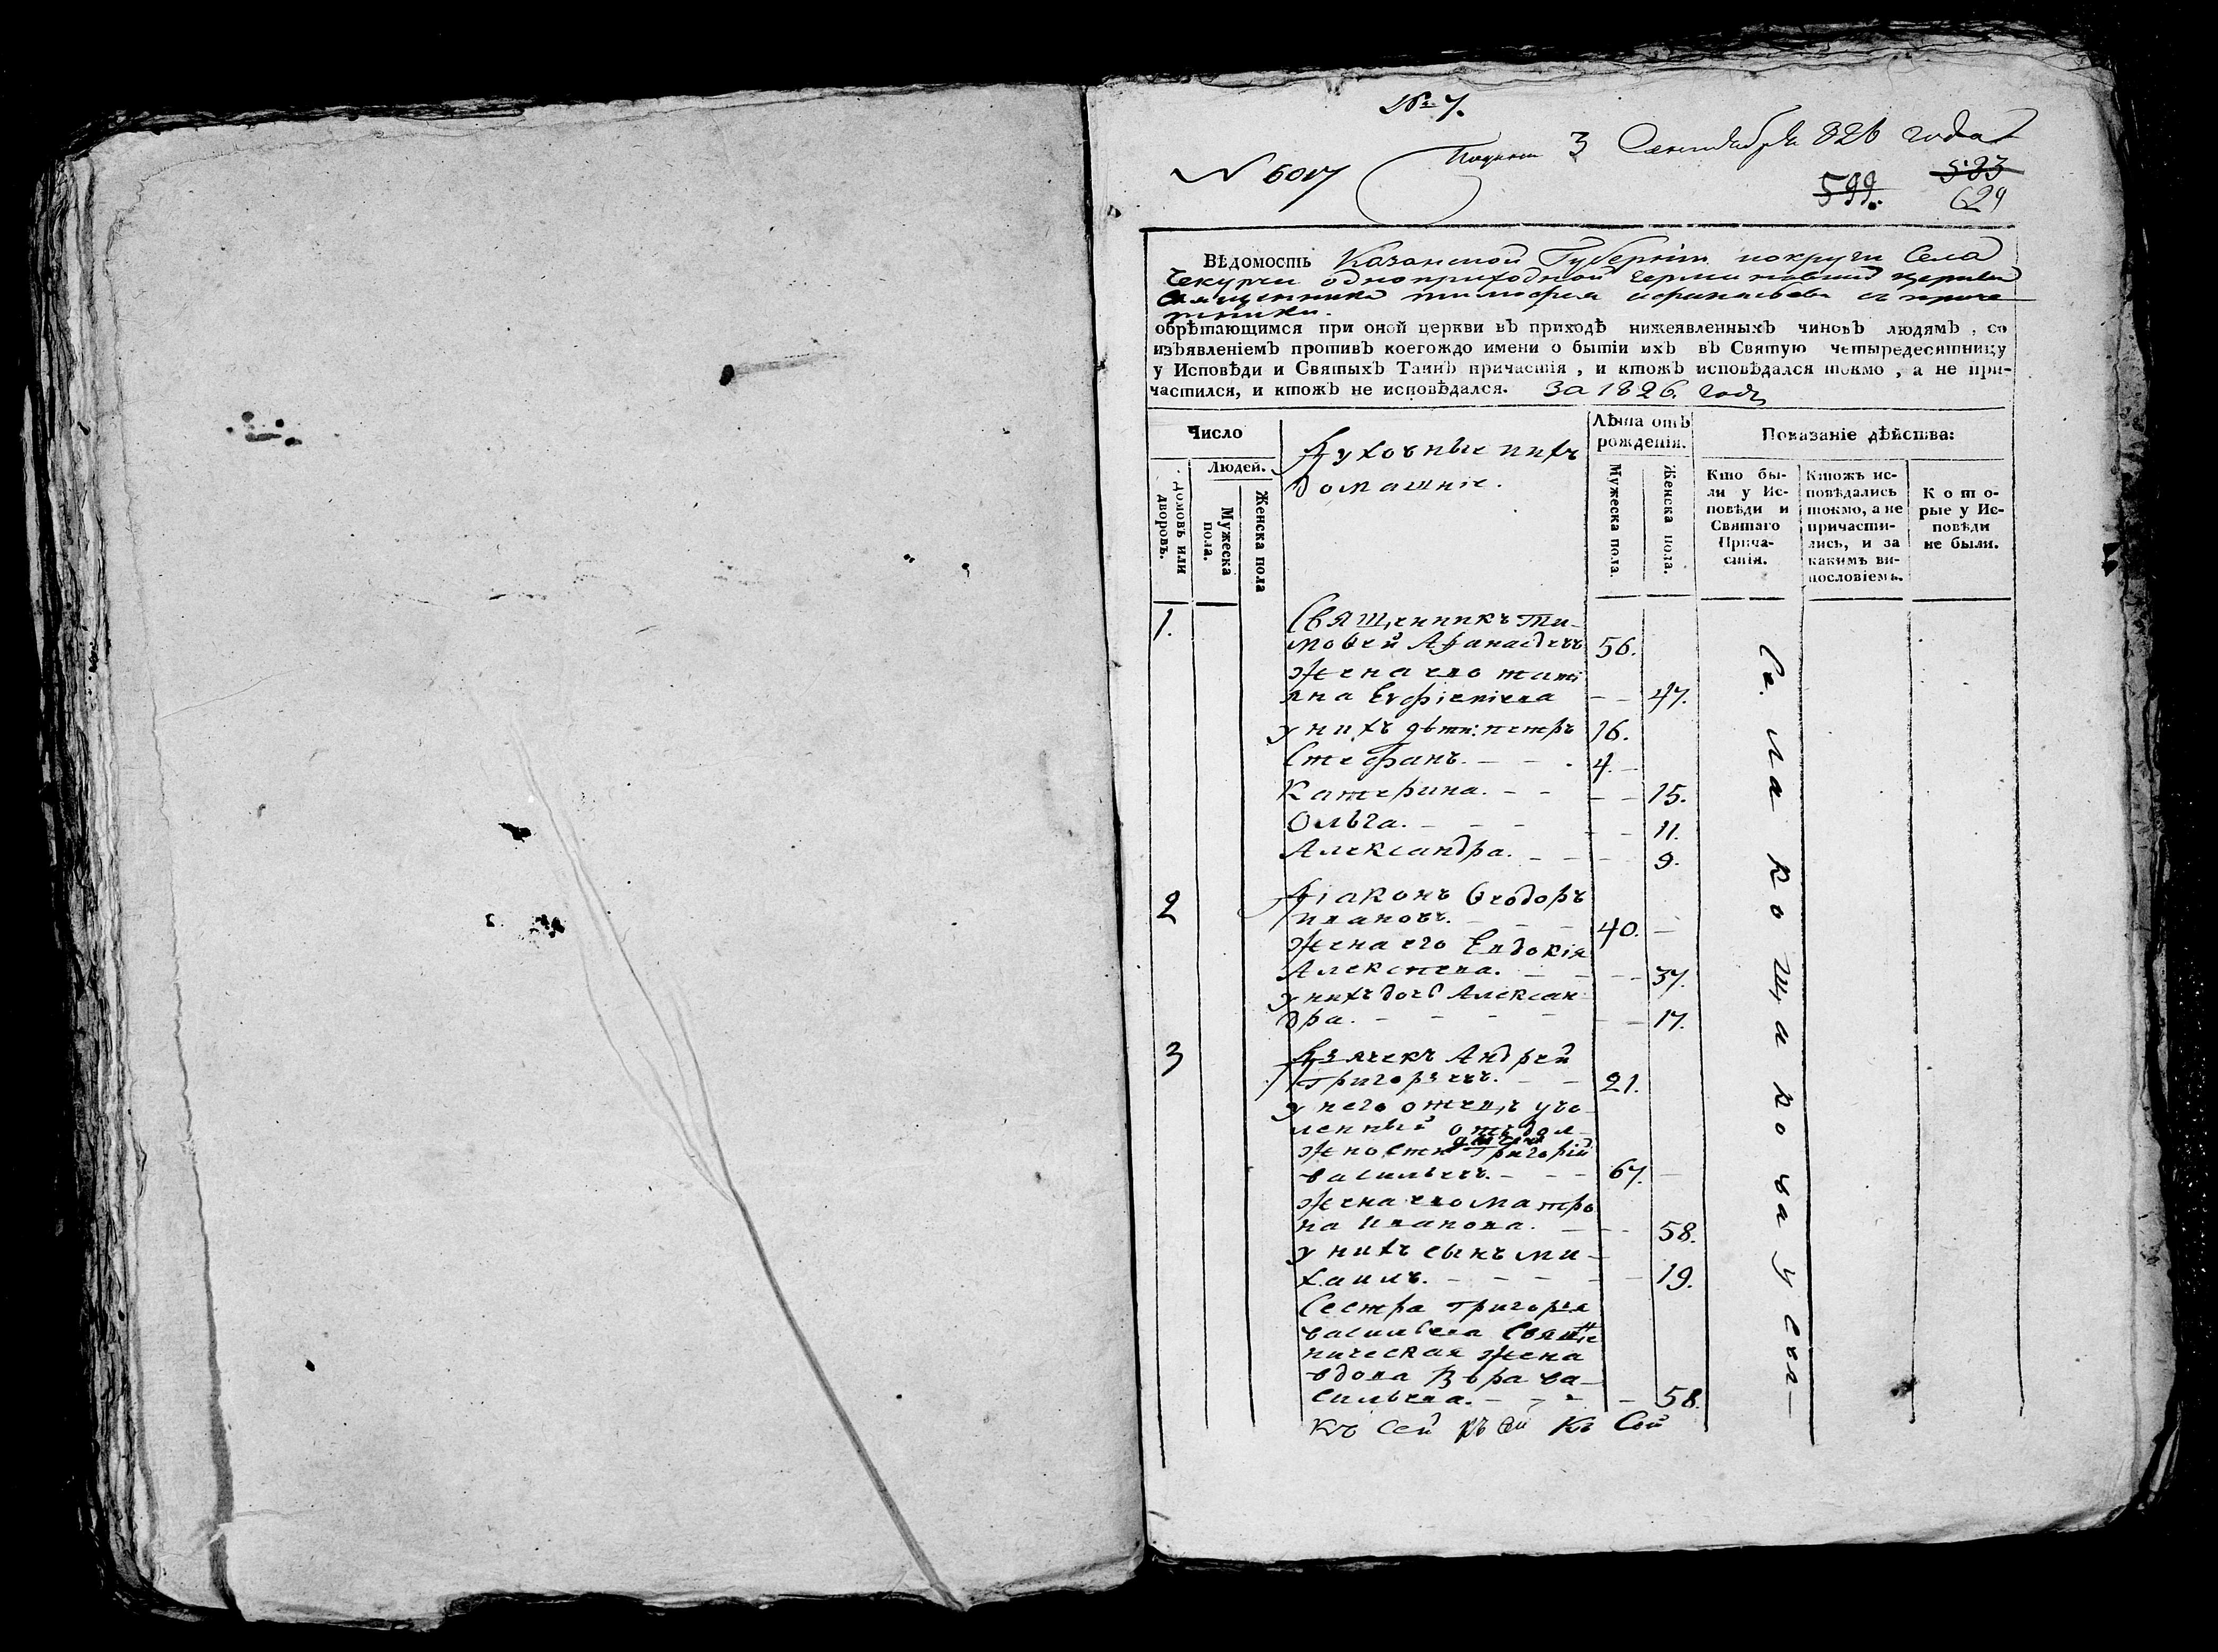 № 7.
3 Сентября 826 года
N 6017
599. 583
629
Вѣдомость Казанской Губерніи покруги Села
Чекурчи одноприходной церкви
Священника тимофея афанасьева съ приче
тники.
обрѣтающимся при оной церкви въ приходѣ нижеявленныхъ чиновъ людямъ, со
изъявленіемъ противъ коегождо имени о бытіи ихъ въ Святую четыредесятницу
у Исповѣди и Святыхъ Таинъ причастія, и ктожъ исповѣдался токмо, а не при-
частился, и ктожъ не исповѣдался. За 1826. годъ
Число
Людей.
домовъ или дворовъ.
Мужеска пола.
Женска пола
Духовные ихъ
домашніе.
Лѣта отъ
рожденія.
Мужеска пола.
Женска пола.
Показаніе дѣйства:
Кто бы-
ли у Ис-
повѣди и
Святаго
Прича-
стія.
Ктожъ ис-
повѣдались
токмо, а не
причасти-
лись, и за
какимъ ви-
нословіемъ.
Кото-
рые у Ис-
повѣди
не были.
1. Священникъ ти-
моѳей Афанасьевъ 56.
Жена его тати
яна Евфіміева - - 47.
у нихъ дѣти: петръ 16.
Стефанъ. - - . 4. -
Катерина. - - - - 15.
Ольга. - - - - - 11.
Александра. - - - 9.
2 Діаконъ Ѳеодоръ
ивановъ. - - 40. -
Жена его Евдокія
Алексѣева. - - - - 37.
у нихъ дочь Алексан
дра. - - - - - - 17.
3 Дьячекъ Андрей
Григорьевъ. - - 21.
у него отецъ уво
ленный отъ дол-
жности Григорій
васильевъ. - - - 67. -
Жена его Матро
на иванова. - - 58.
у нихъ сынъ ми-
хаилъ. - - - - - - 19.
Сестра григорья
васильева Священ
ническая жена
вдова Вѣра ва-
сильева. - - - - 58.
Къ Сей къ сей Къ Сей